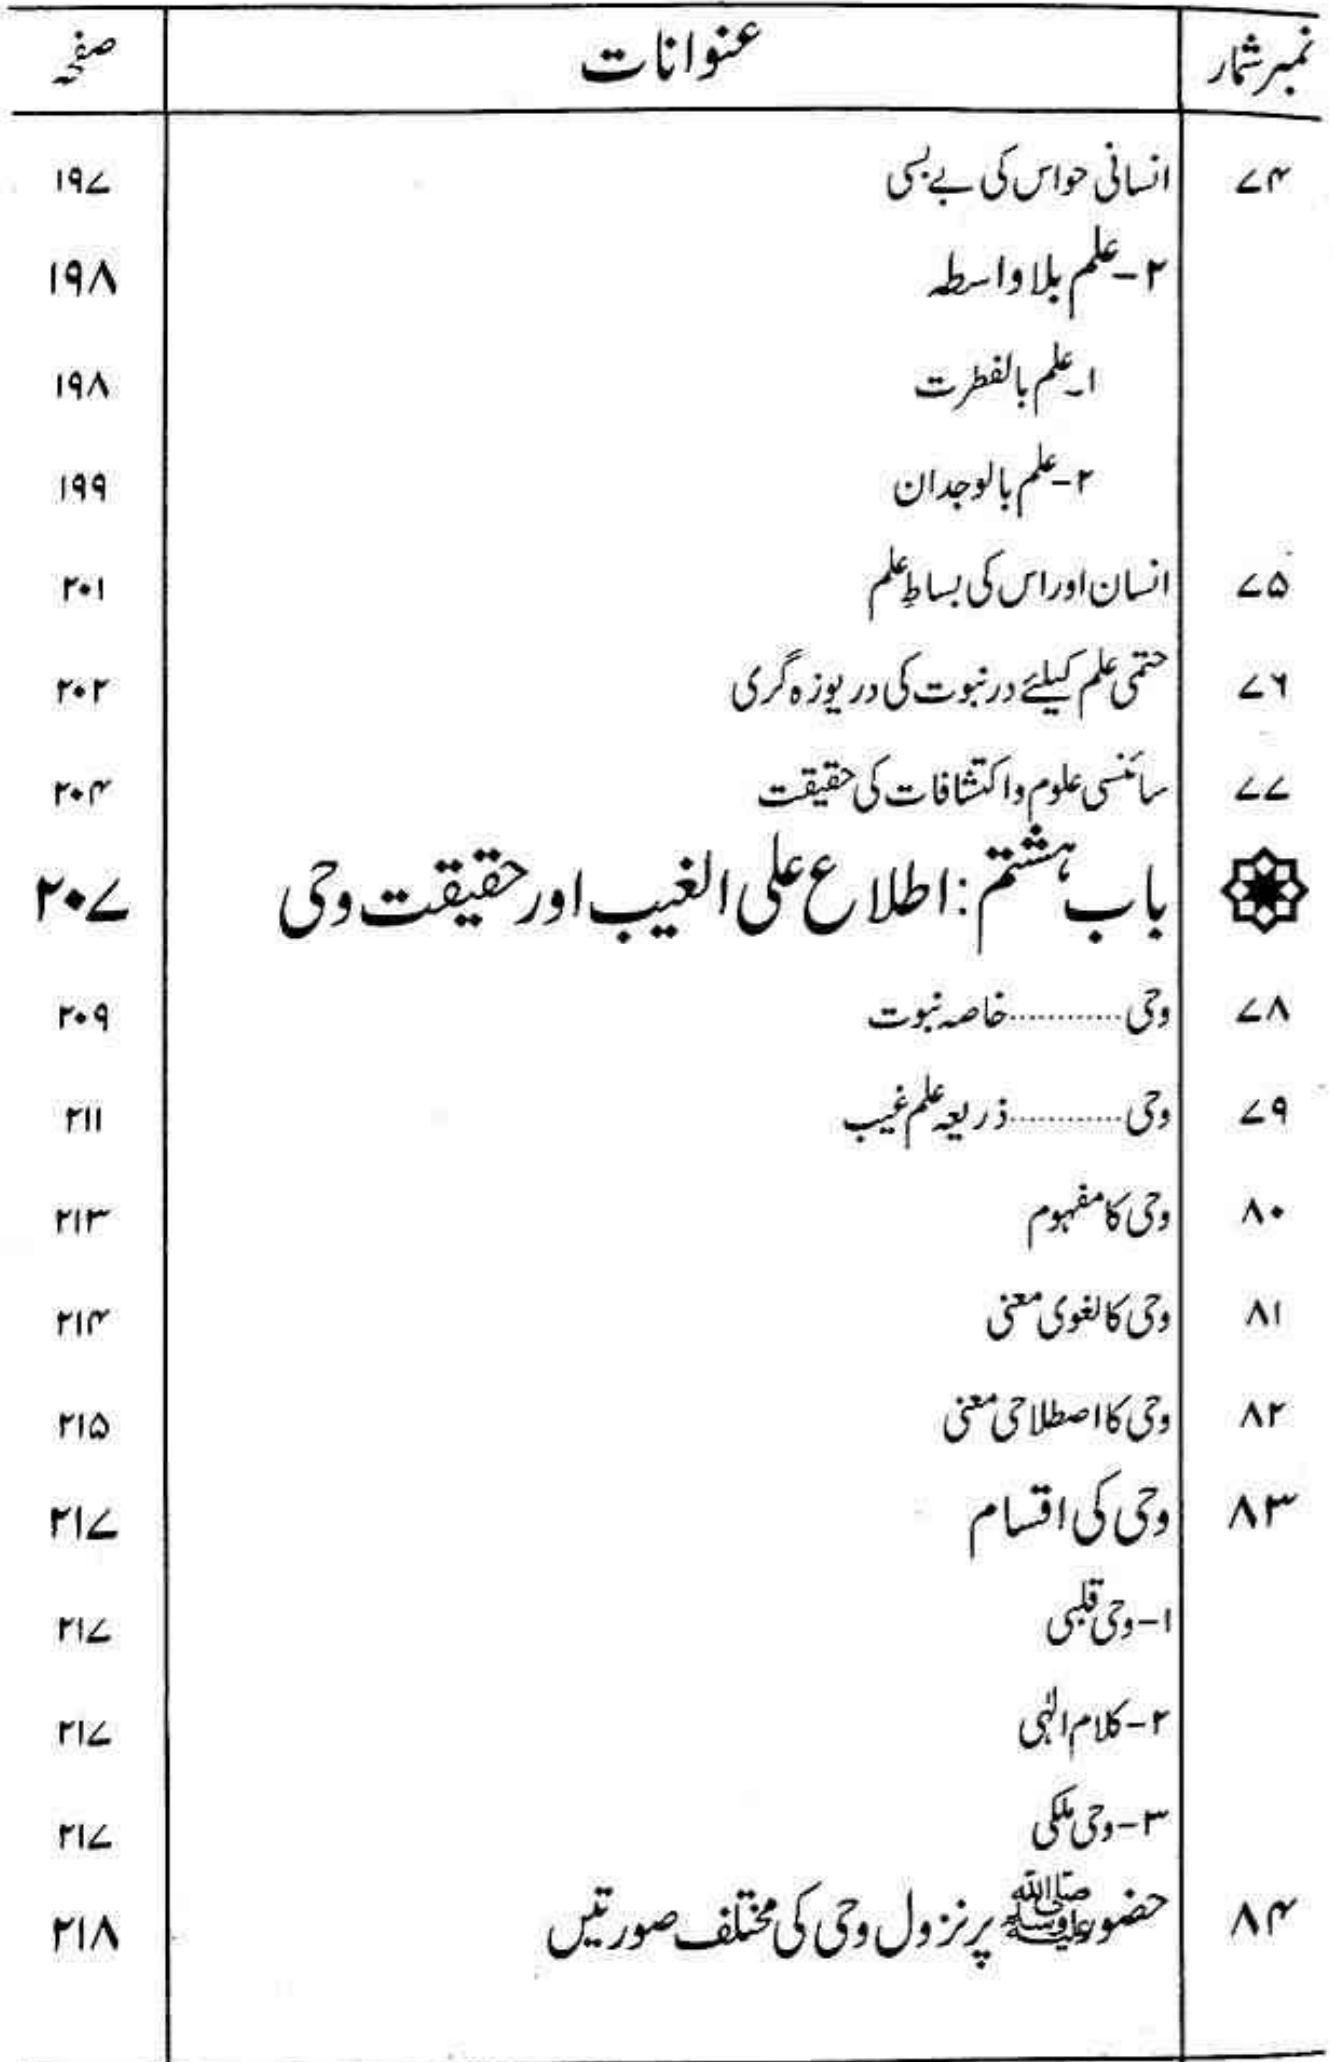 نمبر شمار عنوانات صفحہ
۷۴ انسانی حواس کی بے بسی ۱۹۷
۲- علم بلا واسطہ ۱۹۸
۱۔ علم بالفطرت ۱۹۸
۲- علم بالوجدان ۱۹۹
۷۵ انسان اور اس کی بساطِ علم ۲۰۱
۷۶ حتمی علم کیلئے در نبوت کی دریوزہ گری ۲۰۲
۷۷ سائنسی علوم و اکتشافات کی حقیقت ۲۰۴
باب ہشتم: اطلاع علی الغیب اور حقیقت وحی ۲۰۷
۷۸ وحی ........... خاصہ نبوت ۲۰۹
۷۹ وحی ........... ذریعہ علم غیب ۲۱۱
۸۰ وحی کا مفہوم ۲۱۳
۸۱ وحی کا لغوی معنی ۲۱۴
۸۲ وحی کا اصطلاحی معنی ۲۱۵
۸۳ وحی کی اقسام ۲۱۷
۱- وحی قلبی ۲۱۷
۲- کلام الٰہی ۲۱۷
۳- وحی ملکی ۲۱۷
۸۴ حضور ﷺ پر نزول وحی کی مختلف صورتیں ۲۱۸